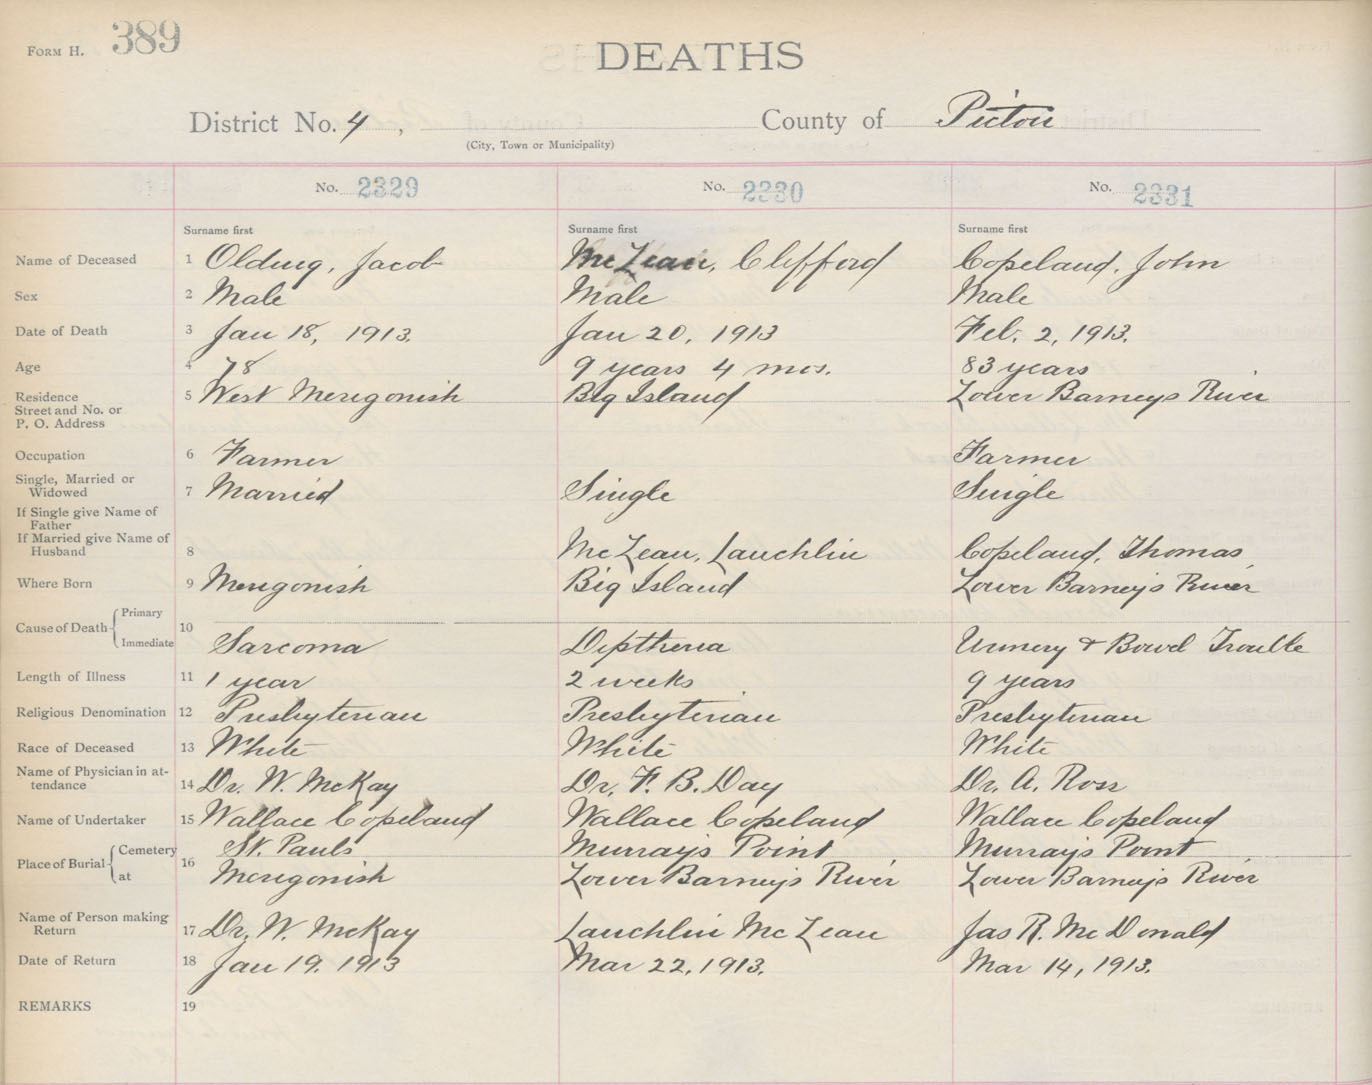 FORM H. 389
DEATHS
District No. 4 , County of Pictou
(City, Town or Municipality)
No. 2329 No. 2330 No. 2331
Surname first Surname first Surname first
Name of Deceased 1 Olding, Jacob McLean, Clifford Copeland, John
Sex 2 Male Male Male
Date of Death 3 Jan 18, 1913. Jan 20, 1913 Feb. 2, 1913.
Age 4 78 9 years 4 mos. 83 years
Residence 5 West Merigonish Big Island Lower Barneys River
Street and No. or
P. O. Address
Occupation 6 Farmer Farmer
Single, Married or
Widowed 7 Married Single Single
If Single give Name of
Father
If Married give Name of
Husband 8 McLean, Lauchlin Copeland, Thomas
Where Born 9 Merigonish Big Island Lower Barney's River
Cause of Death Primary 10
Immediate Sarcoma Diptheria Urinery & Bowel Trouble
Length of Illness 11 1 year 2 weeks 9 years
Religious Denomination 12 Presbyterian Presbyterian Presbyterian
Race of Deceased 13 White White White
Name of Physician in at-
tendance 14 Dr. W. McKay Dr. F. B. Day Dr. A. Ross
Name of Undertaker 15 Wallace Copeland Wallace Copeland Wallace Copeland
Place of Burial Cemetery 16 St. Pauls Murray's Point Murray's Point
at Merigonish Lower Barney's River Lower Barney's River
Name of Person making
Return 17 Dr. W. McKay Lauchlin McLean Jas R. McDonald
Date of Return 18 Jan 19. 1913 Mar 22, 1913. Mar 14, 1913.
REMARKS 19